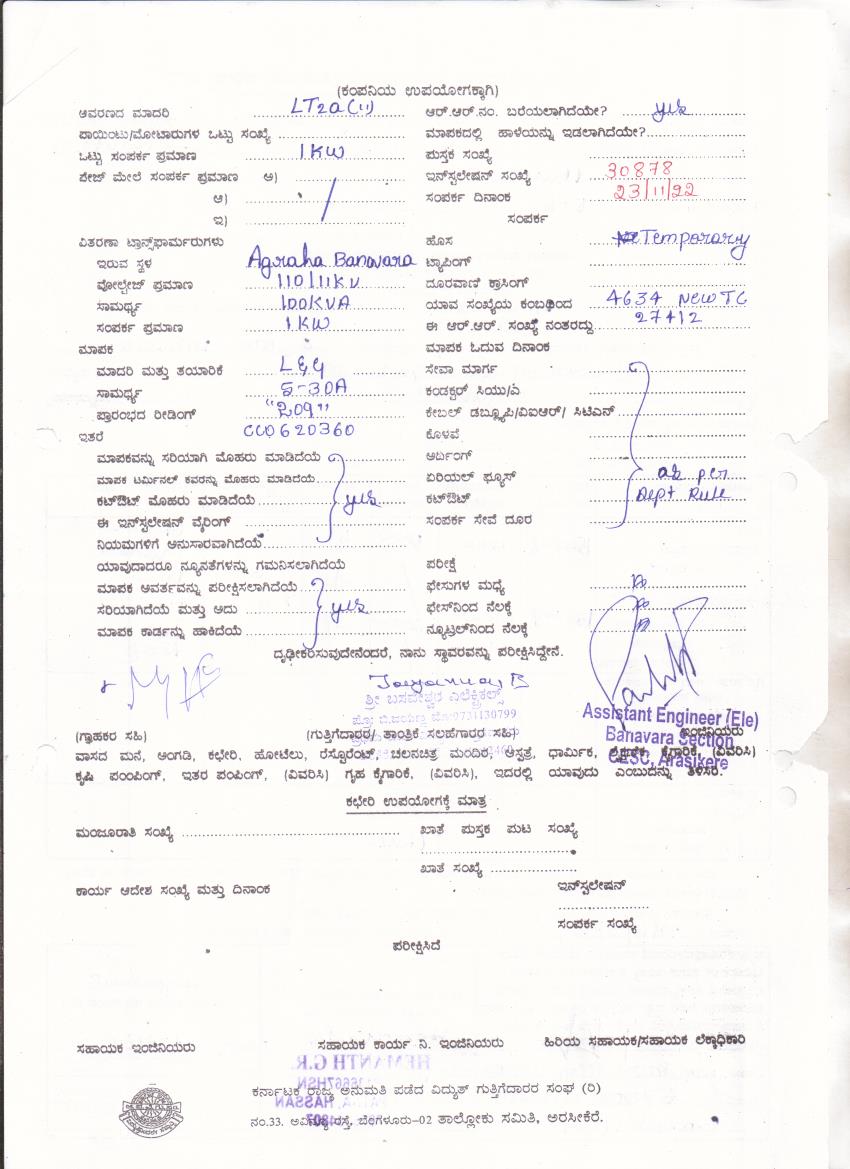 (ಕಂಪನಿಯ ಉಪಯೋಗಕ್ಕಾಗಿ)
ಆವರಣದ ಮಾದರಿ LT2a(ii) ಆರ್.ಆರ್.ನಂ. ಬರೆಯಲಾಗಿದೆಯೇ? yes
ಪಾಯಿಂಟು/ಮೋಟಾರುಗಳ ಒಟ್ಟು ಸಂಖ್ಯೆ ಮಾಪಕದಲ್ಲಿ ಹಾಳೆಯನ್ನು ಇಡಲಾಗಿದೆಯೇ?
ಒಟ್ಟು ಸಂಪರ್ಕ ಪ್ರಮಾಣ 1KW ಪುಸ್ತಕ ಸಂಖ್ಯೆ
ಪೇಜ್ ಮೇಲೆ ಸಂಪರ್ಕ ಪ್ರಮಾಣ ಅ) ಇನ್‌ಸ್ಟಲೇಷನ್ ಸಂಖ್ಯೆ 30878
ಆ) ಸಂಪರ್ಕ ದಿನಾಂಕ 23/11/22
ಇ) ಸಂಪರ್ಕ
ವಿತರಣಾ ಟ್ರಾನ್ಸ್‌ಫಾರ್ಮರುಗಳು ಹೊಸ Temporary
ಇರುವ ಸ್ಥಳ Agraha Banavara ಟ್ಯಾಪಿಂಗ್
ವೋಲ್ಟೇಜ್ ಪ್ರಮಾಣ 110/11KV ದೂರವಾಣಿ ಕ್ರಾಸಿಂಗ್
ಸಾಮರ್ಥ್ಯ 100KVA ಯಾವ ಸಂಖ್ಯೆಯ ಕಂಬದಿಂದ 4634 New TC
ಸಂಪರ್ಕ ಪ್ರಮಾಣ 1KW ಈ ಆರ್.ಆರ್. ಸಂಖ್ಯೆ ನಂತರದ್ದು 27412
ಮಾಪಕ ಮಾಪಕ ಓದುವ ದಿನಾಂಕ
ಮಾದರಿ ಮತ್ತು ತಯಾರಿಕೆ L&G ಸೇವಾ ಮಾರ್ಗ
ಸಾಮರ್ಥ್ಯ 5-30A ಕಂಡಕ್ಟರ್ ಸಿಯು/ಎ
ಪ್ರಾರಂಭದ ರೀಡಿಂಗ್ "209" ಕೇಬಲ್ ಡಬ್ಲ್ಯೂಪಿ/ವಿಐಆರ್/ ಸಿಟಿಎಸ್
ಇತರೆ CC0620360 ಕೊಳವೆ
ಮಾಪಕವನ್ನು ಸರಿಯಾಗಿ ಮೊಹರು ಮಾಡಿದೆಯೆ ಅರ್ದಿಂಗ್
ಮಾಪಕ ಟರ್ಮಿನಲ್ ಕವರನ್ನು ಮೊಹರು ಮಾಡಿದೆಯೆ ಏರಿಯಲ್ ಫ್ಯೂಸ್ as per
ಕಟ್‌ಔಟ್ ಮೊಹರು ಮಾಡಿದೆಯೆ yes ಕಟ್‌ಔಟ್ Dept Rule
ಈ ಇನ್‌ಸ್ಟಲೇಷನ್ ವೈರಿಂಗ್ ಸಂಪರ್ಕ ಸೇವೆ ದೂರ
ನಿಯಮಗಳಿಗೆ ಅನುಸಾರವಾಗಿದೆಯೆ
ಯಾವುದಾದರೂ ನ್ಯೂನತೆಗಳನ್ನು ಗಮನಿಸಲಾಗಿದೆಯೆ ಪರೀಕ್ಷೆ
ಮಾಪಕ ಆವರ್ತವನ್ನು ಪರೀಕ್ಷಿಸಲಾಗಿದೆಯೆ ಫೇಸುಗಳ ಮಧ್ಯೆ
ಸರಿಯಾಗಿದೆಯೆ ಮತ್ತು ಅದು yes ಫೇಸ್‌ನಿಂದ ನೆಲಕ್ಕೆ
ಮಾಪಕ ಕಾರ್ಡನ್ನು ಹಾಕಿದೆಯೆ ನ್ಯೂಟ್ರಲ್‌ನಿಂದ ನೆಲಕ್ಕೆ
ದೃಢೀಕರಿಸುವುದೇನೆಂದರೆ, ನಾನು ಸ್ಥಾವರವನ್ನು ಪರೀಕ್ಷಿಸಿದ್ದೇನೆ.
ಶ್ರೀ ಬಸವೇಶ್ವರ ಎಲೆಕ್ಟ್ರಿಕಲ್ಸ್
ಪ್ರೊ: ಬಿ.ಜಯಣ್ಣ ಮೊ:9731130799
Assistant Engineer (Ele)
(ಗ್ರಾಹಕರ ಸಹಿ) (ಗುತ್ತಿಗೆದಾರರ/ ತಾಂತ್ರಿಕ ಸಲಹೆಗಾರರ ಸಹಿ) ಇಂಜಿನಿಯರು
Banavara Section
ವಾಸದ ಮನೆ, ಅಂಗಡಿ, ಕಛೇರಿ, ಹೋಟೆಲು, ರೆಸ್ಟೊರೆಂಟ್, ಚಲನಚಿತ್ರ ಮಂದಿರ, ಆಸ್ಪತ್ರೆ, ಧಾರ್ಮಿಕ, ಶೈಕ್ಷಣಿಕ, ಕೈಗಾರಿಕೆ, (ವಿವರಿಸಿ)
CESC, Arasikere
ಕೃಷಿ ಪಂಂಪಿಂಗ್, ಇತರ ಪಂಪಿಂಗ್, (ವಿವರಿಸಿ) ಗೃಹ ಕೈಗಾರಿಕೆ, (ವಿವರಿಸಿ), ಇದರಲ್ಲಿ ಯಾವುದು ಎಂಬುದನ್ನು ತಿಳಿಸಿರಿ.
ಕಛೇರಿ ಉಪಯೋಗಕ್ಕೆ ಮಾತ್ರ
ಮಂಜೂರಾತಿ ಸಂಖ್ಯೆ ಖಾತೆ ಪುಸ್ತಕ ಪುಟ ಸಂಖ್ಯೆ
ಖಾತೆ ಸಂಖ್ಯೆ
ಕಾರ್ಯ ಆದೇಶ ಸಂಖ್ಯೆ ಮತ್ತು ದಿನಾಂಕ ಇನ್‌ಸ್ಟಲೇಷನ್
ಸಂಪರ್ಕ ಸಂಖ್ಯೆ
ಪರೀಕ್ಷಿಸಿದೆ
ಸಹಾಯಕ ಇಂಜಿನಿಯರು ಸಹಾಯಕ ಕಾರ್ಯ ನಿ. ಇಂಜಿನಿಯರು ಹಿರಿಯ ಸಹಾಯಕ/ಸಹಾಯಕ ಲೆಕ್ಕಾಧಿಕಾರಿ
ಕರ್ನಾಟಕ ರಾಜ್ಯ ಅನುಮತಿ ಪಡೆದ ವಿದ್ಯುತ್ ಗುತ್ತಿಗೆದಾರರ ಸಂಘ (ರಿ)
ನಂ.33. ಅವೆನ್ಯೂ ರಸ್ತೆ, ಬೆಂಗಳೂರು-02 ತಾಲ್ಲೋಕು ಸಮಿತಿ, ಅರಸೀಕೆರೆ.